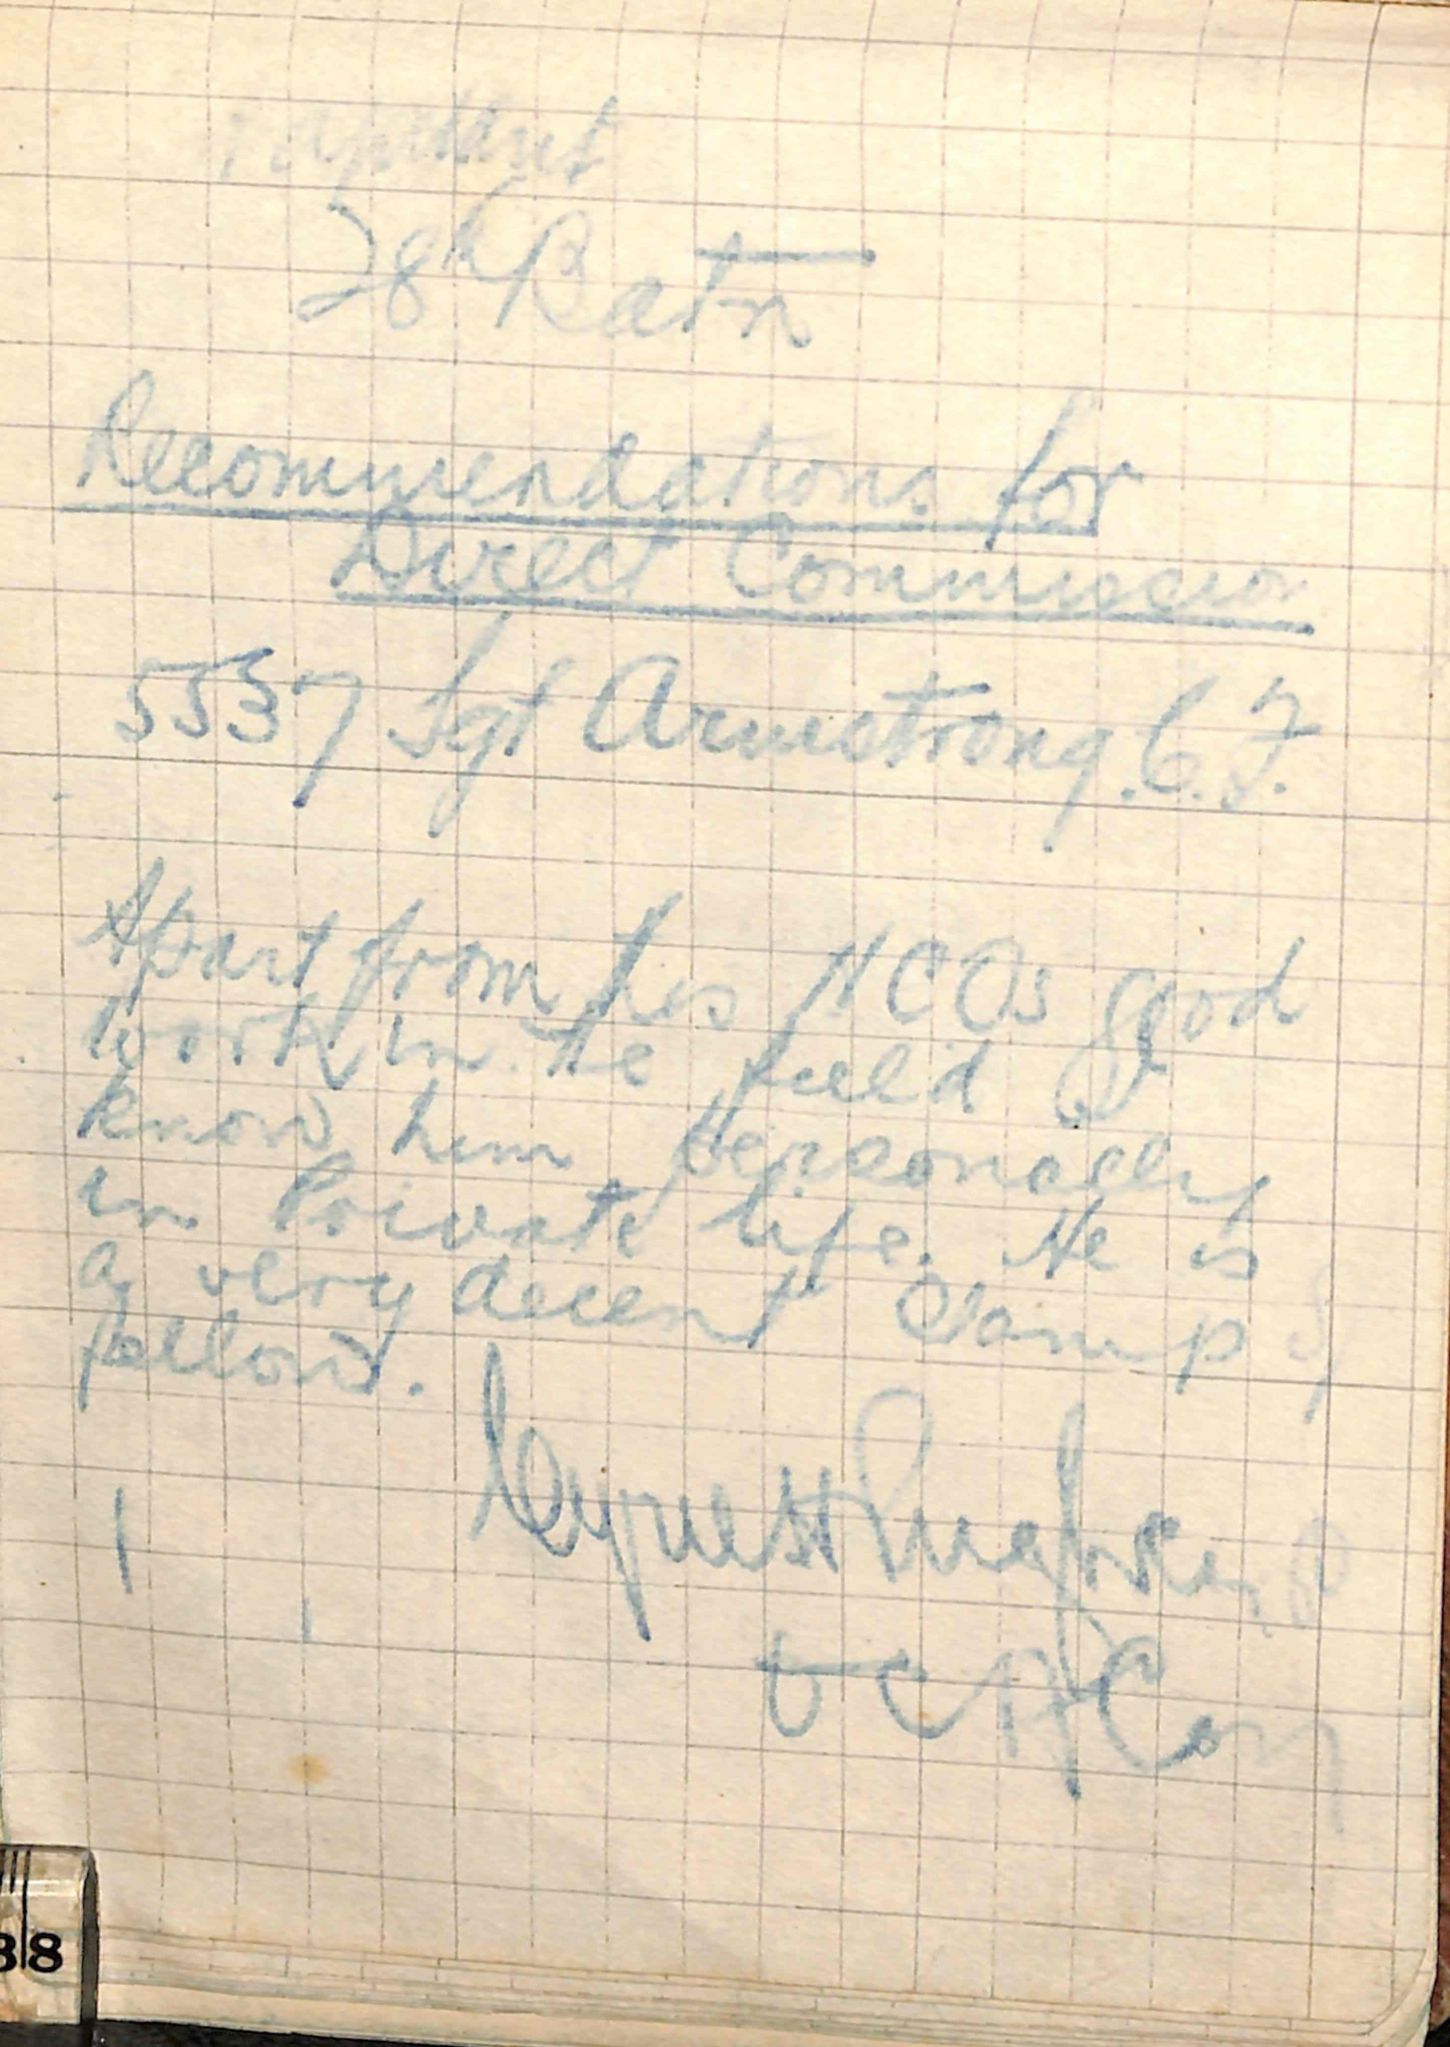 58th Batn
Recommendations for
Direct Commission
5537 Sgt Armstrong. C. F.
Apart from his NCOs good
work in the field I
know him personally
in Private life. He is
a very decent stamp of
fellow.
OC A Coy